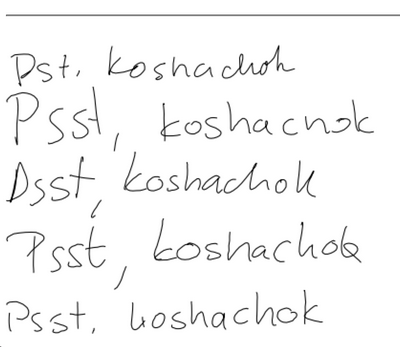 Pst. koshachok
Psst, koshachok
Psst, koshachok
Psst, koshachok
Psst. koshachok